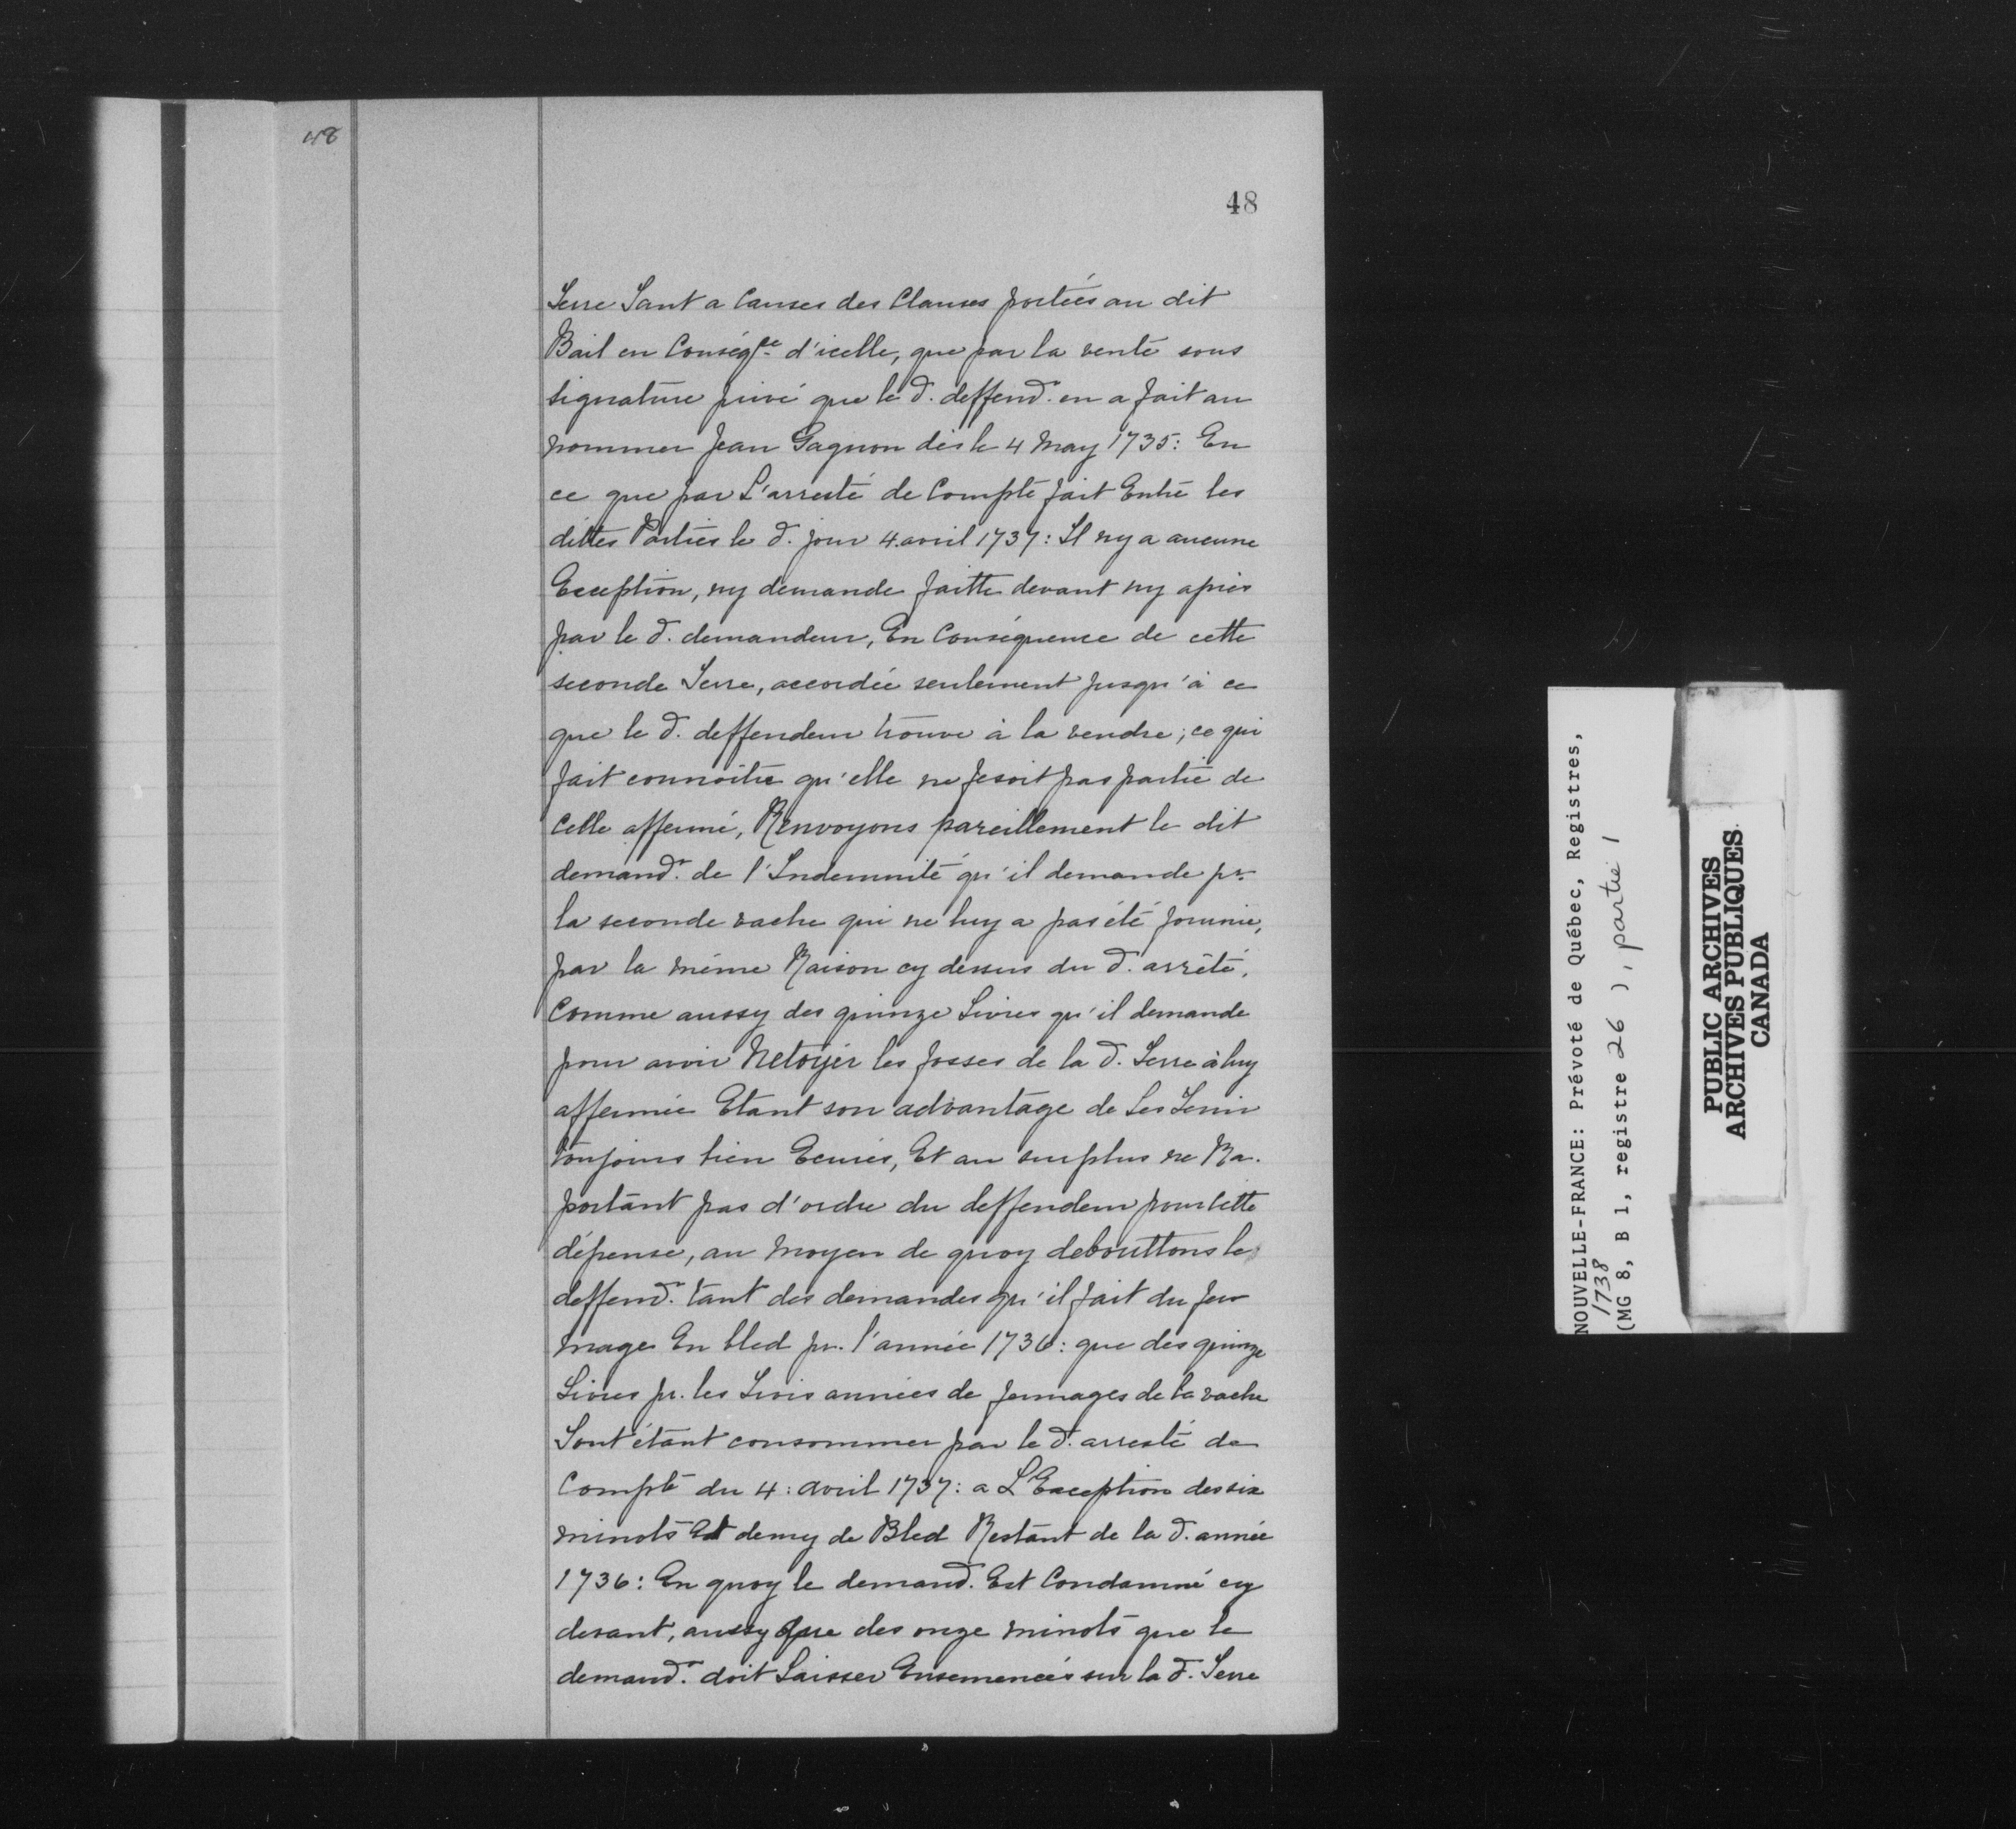 48
48
Terre Tant a Causes des Clauses portées au dit
Bail en Conséq.ce d'icelle, que par la vente sous
signature privé que le d. deffend.r en a fait au
nommer Jean Gagnon dès le 4 May 1735: En
ce que par L'arresté de Compte fait Entre les
dittes Parties le d. jour 4. avril 1737: Il ny a aucune
Exception, ny demande faitte devant ny après
par le d. demandeur, En Conséquence de cette
seconde Terre, accordée seulement jusqu'à ce
que le d. deffendeur trouve à la vendre; ce qui
fait connoitre qu'elle ne fesoit pas partie de
Celle affermé, Renvoyons pareillement le dit
demand.r de l'Indemnité qu'il demande pr.
la seconde vache qui ne luy a pas été fournie,
par la même Raison cy dessus du d. arrêté.
Comme aussy des quinze Livres qu'il demande
pour avoir Netoyér les fosses de la d. Terre à luy
affermée Etant son advantage de Les Tenir
toujours bien Ecurés, Et au surplus ne Ra-
portant pas d'ordre du deffendeur pour Cette
dépense, au Moyen de quoy debouttons le
deffend.r tant des demandes qu'il fait du fer
mage En bled pr. l'année 1736: que des quinze
Livres pr. les Trois années de fermages de la vache
Tout étant consommer par le d. arresté de
Compte du 4: avril 1737: a L'Exception des six
minots Et demy de Bled Restant de la d. année
1736: En quoy le demand. Est Condamné cy
devant, aussy que des onze minots que le
demand.r doit Laisser Ensemencés sur la d. Terre
NOUVELLE-FRANCE: Prévoté de Québec, Registres,
1738
(MG 8, B 1, registre 26 ), partie 1
PUBLIC ARCHIVES
ARCHIVES PUBLIQUES
CANADA